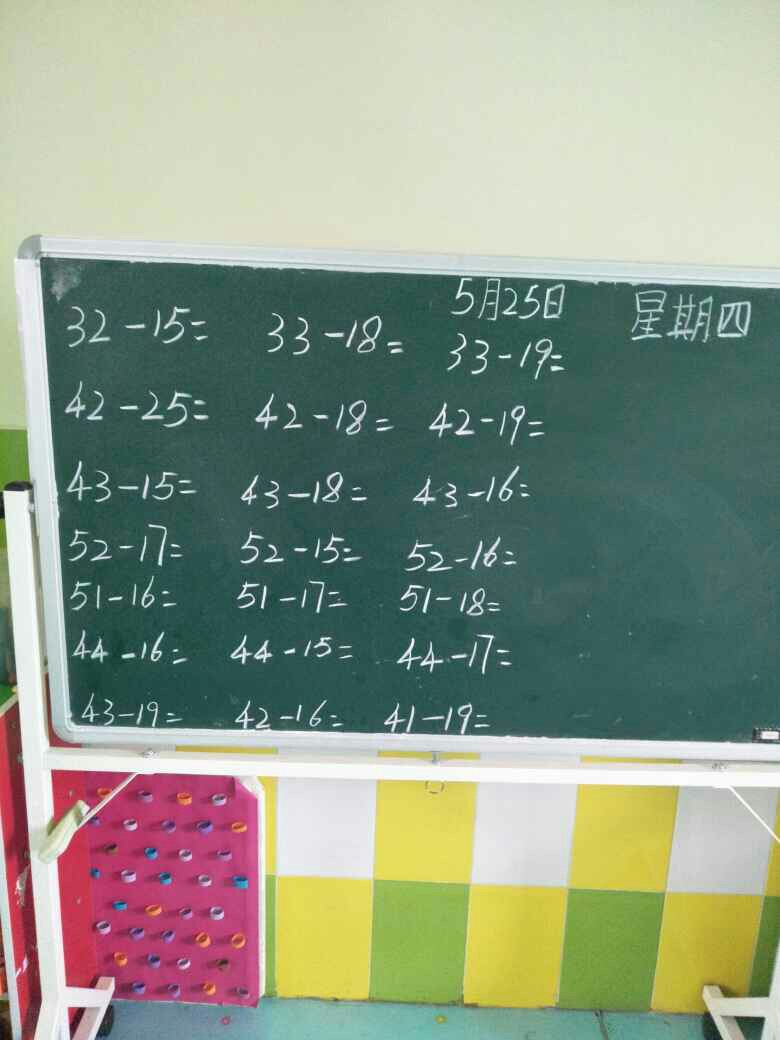 5月25日 星期四
32-15= 33-18= 33-19=
42-25= 42-18= 42-19=
43-15= 43-18= 43-16=
52-17= 52-15= 52-16=
51-16= 51-17= 51-18=
44-16= 44-15= 44-17=
43-19= 42-16= 41-19=